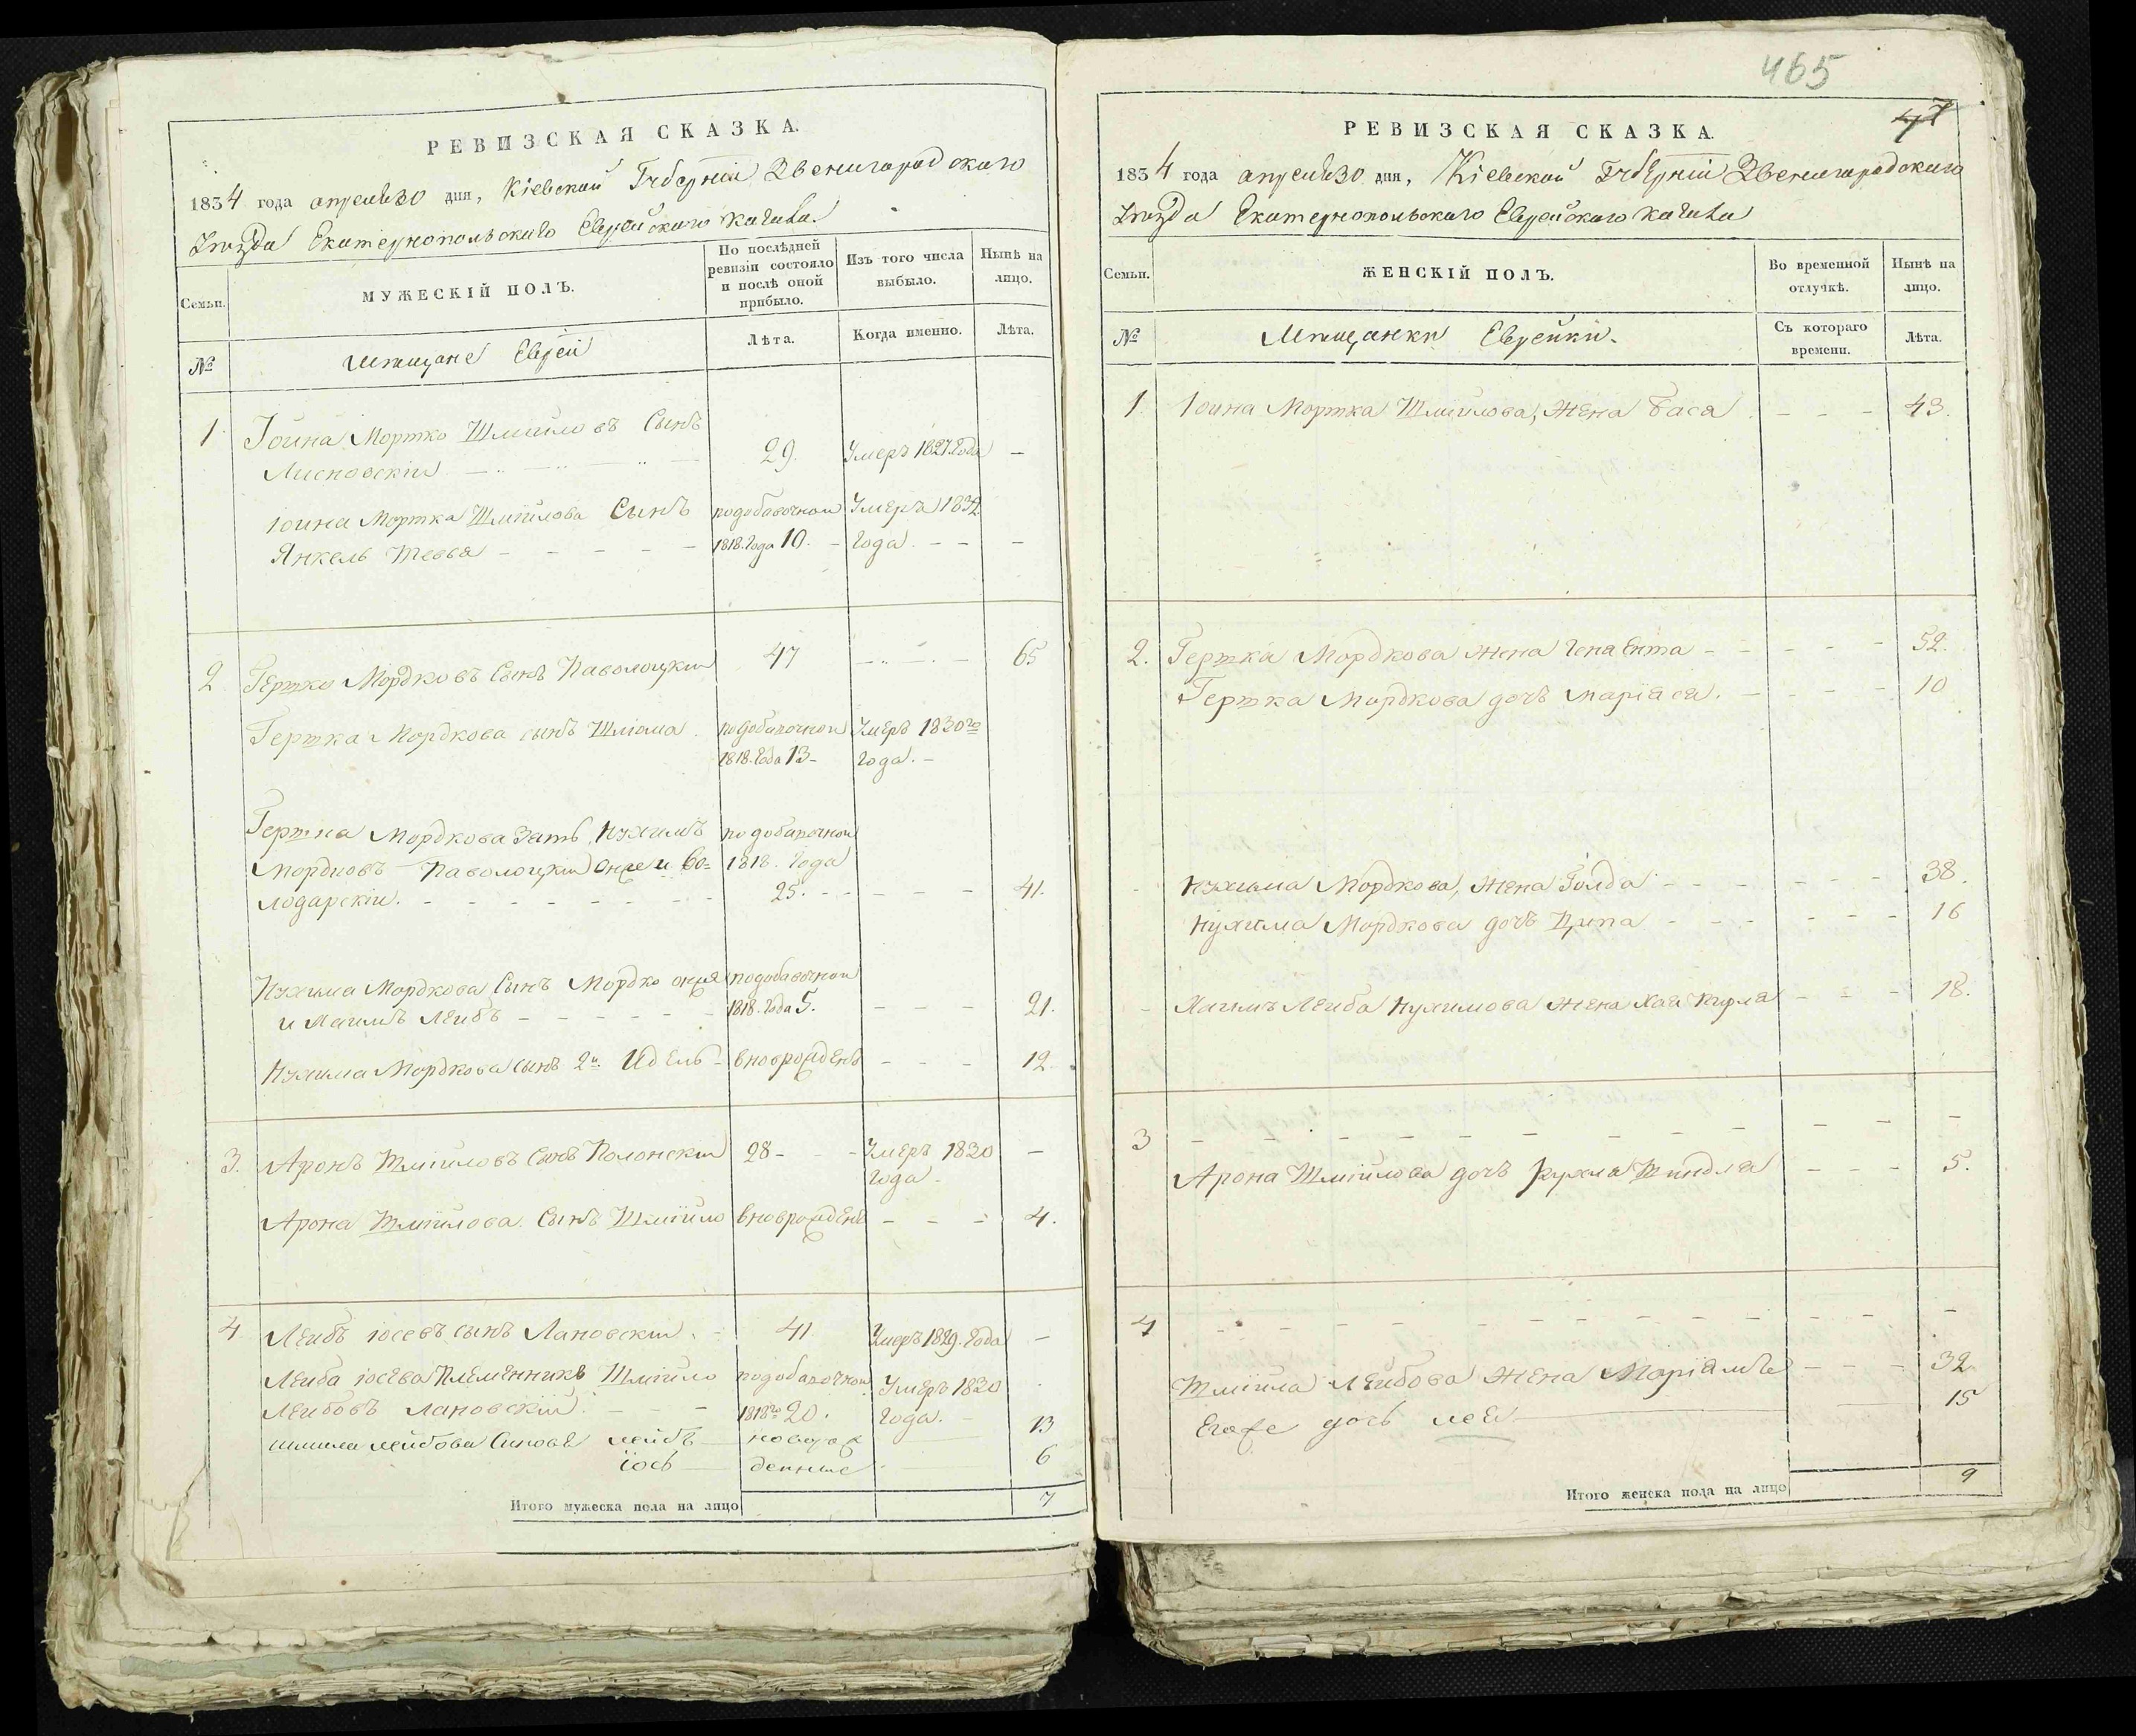 РЕВИЗСКАЯ СКАЗКА.
1834 года апреля 30 дня, Кіевской Губерніи Звенигородского
Уезда Екатеринопольского Еврейского кагала
Семьи.
МУЖЕСКІЙ ПОЛЪ.
По послѣдней ревизіи состояло и послѣ оной прибыло.
Изъ того числа выбыло.
Нынѣ на лицо.
№
Мещане Евреи
Лѣта.
Когда именно.
Лѣта.
1 Іоина Мортко Шмуйловъ Сынъ
Лисновскій 29. Умеръ 1827 Года —
Іоина Мортка Шмуйлова Сынъ подобавочной Умеръ 1832
Янкель Тевья 1818. Года 10. Года. —
2 Гершко Мордковъ Сынъ Паволоцкій 47 65
Гершка Мордкова сынъ Шліома подобавочной Умеръ 1830го
1818. Года 13 Года.
Гершка Мордкова Зять, Нухимъ подобавочной
Мордковъ Паволоцкій Онже и Во= 1818. Года
лодарскій. 25. 41.
Нухима Мордкова Сынъ Мордко онже подобавочной
и Хаимъ Лейбъ 1818. Года 5. 21.
Нухима Мордкова сынъ 2й Идель вноврожденъ 12.
3. Аронъ Шміиловъ Сынъ Полонскій 28 Умеръ 1830 —
Года
Арона Шміилова Сынъ Шміило вноврожденъ 4.
4 Лейбъ Іосевъ сынъ Лановскій 41 Умеръ 1829. Года —
Лейба Іосева Племенникъ Шміило подобавочной Умеръ 1830
Лейбовъ Лановскій 1818го 20. Года.
Шмила Лейбова Синовья Лейбъ новорож 13
Іось денные 6
Итого мужеска пола на лицо 7
465
47
РЕВИЗСКАЯ СКАЗКА.
1834 года апреля 30 дня, Кіевской Губерніи Звенигородского
Уезда Екатеринопольского Еврейского кагала
Семьи.
ЖЕНСКІЙ ПОЛЪ.
Во временной отлучкѣ.
Нынѣ на лицо.
№
Мещанки Еврейки.
Съ котораго времени.
Лѣта.
1 Іоина Мортка Шмуйлова, Жена Бася 43.
2. Гершка Мордкова жена Гена Ента 52.
Гершка Мордкова дочь Маріася. 10
Нухима Мордкова, Жена Голда 38.
Нухима Мордкова дочь Ципа 16
Хаимъ Лейба Нухимова жена Хая Перля 18.
3 —
Арона Шміилова дочь Рухля Шиндля 5.
4 —
Шміила Лейбова жена Маріамъ 32
Егоже дочь Лея 15
Итого женска пола на лицо 9